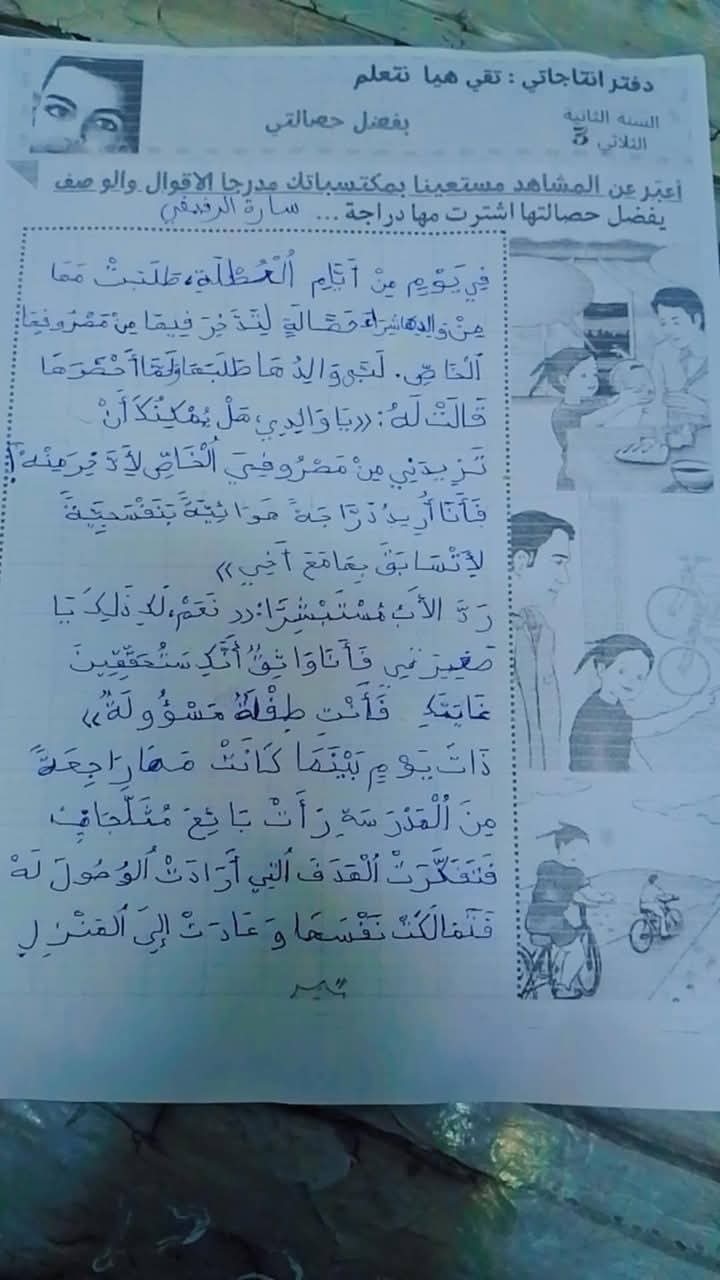 دفتر انتاجاتي : تقي هيا نتعلم
السنه الثانية
الثلاثي 3
بفضل حصالتي
أعبّر عن المشاهد مستعينا بمكتسباتك مدرجا الاقوال والوصف
بفضل حصالتها اشترت مها دراجة ...
فِي يَوْمٍ مِنْ أَيَّامِ الْعُطْلَةِ، طَلَبَتْ مَهَا
مِنْ وَالِدِهَا شِرَاءَ حَصَّالَةٍ لِتَدَّخِرَ فِيهَا مِنْ مَصْرُوفِهَا
الْخَاصِّ. لَبَّى وَالِدُهَا طَلَبَهَا وَلَمَّا أَحْضَرَهَا
قَالَتْ لَهُ : «يَا وَالِدِي، هَلْ يُمْكِنُكَ أَنْ
تَزِيدَنِي مِنْ مَصْرُوفِي الْخَاصِّ لِأَدَّخِرَ مِنْهُ
فَأَنَا أُرِيدُ دَرَّاجَةً هَوَائِيَّةً بَنَفْسَجِيَّةً
لِأَتَسَابَقَ بِهَا مَعَ أَخِي»
رَدَّ الأَبُ مُسْتَبْشِرًا : «نَعَمْ، لَكِ ذَلِكَ يَا
صَغِيرَتِي فَأَنَا وَاثِقٌ أَنَّكِ سَتُحَقِّقِينَ
غَايَتَكِ فَأَنْتِ طِفْلَةٌ مَسْؤُولَةٌ»
ذَاتَ يَوْمٍ بَيْنَمَا كَانَتْ مَهَا رَاجِعَةً
مِنَ الْمَدْرَسَةِ رَأَتْ بَائِعَ مُثَلَّجَاتٍ
فَتَفَكَّرَتْ الْهَدَفَ الَّتِي أَرَادَتْ الْوُصُولَ لَهُ
فَتَمَالَكَتْ نَفْسَهَا وَعَادَتْ إِلَى الْمَنْزِلِ